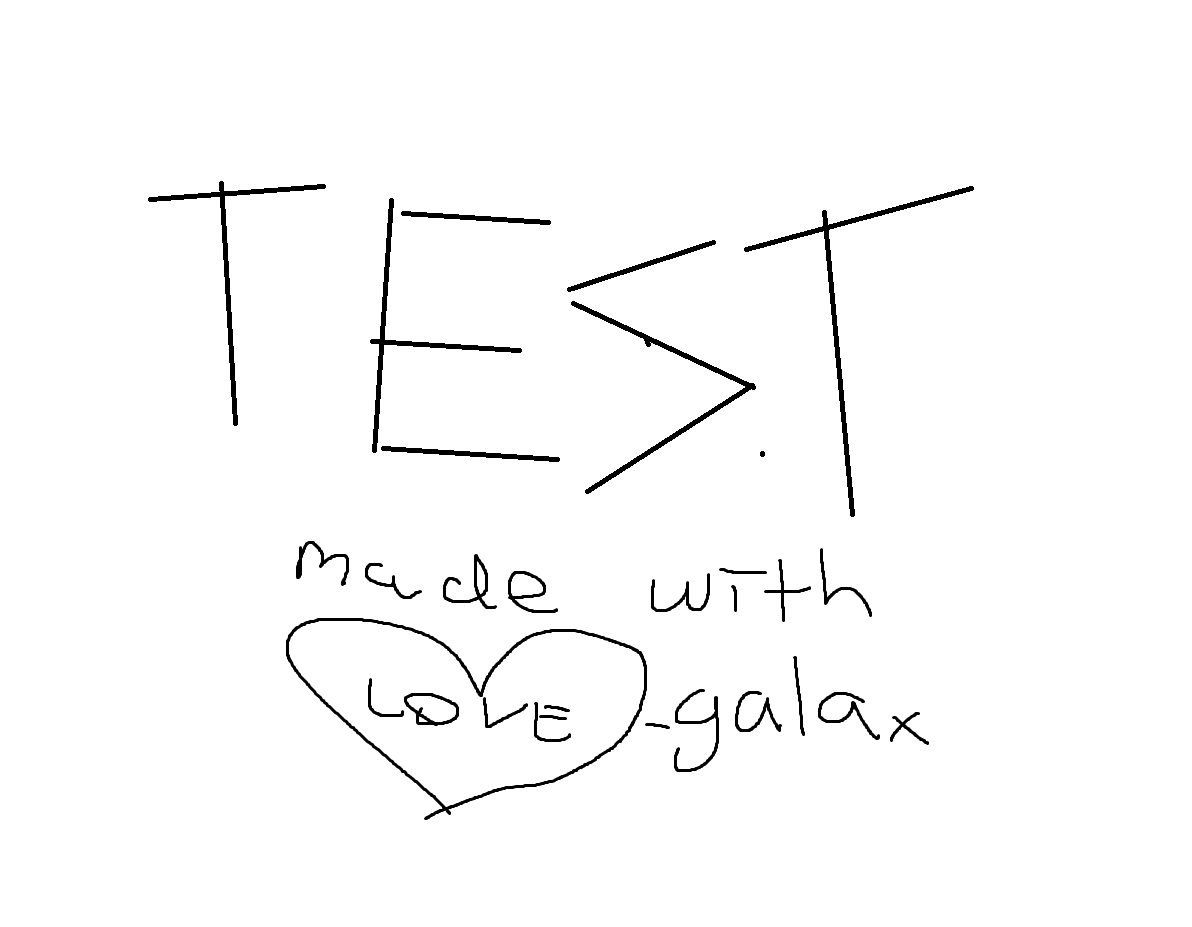 TEST
made with
LOVE -galax